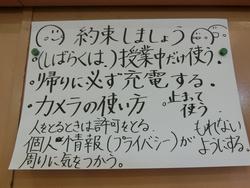 約束しましょう
・(しばらくは、)授業中だけ使う
・帰りに必ず充電する。
・カメラの使い方 止まって使う
人をとるときは許可をとる。
個人情報(プライバシー)がもれないようにする。
周りに気をつかう。